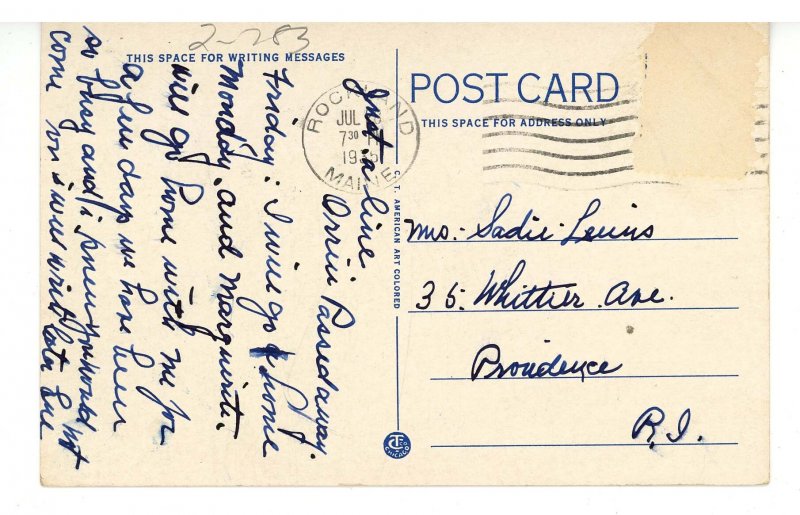 2-283
THIS SPACE FOR WRITING MESSAGES
Just a line
Orrin Passed away
Friday. I will go home
Monday. and Marguerite.
will go home with me for
a few days we have been
so busy and i knew you would not
come on i will write later
POST CARD
THIS SPACE FOR ADDRESS ONLY
ROCKLAND
JUL
7 30
MAINE
C. T. AMERICAN ART COLORED
Mrs. Sadie Lewis
35 Whittier Ave.
Providence
R.I.
CHICAGO